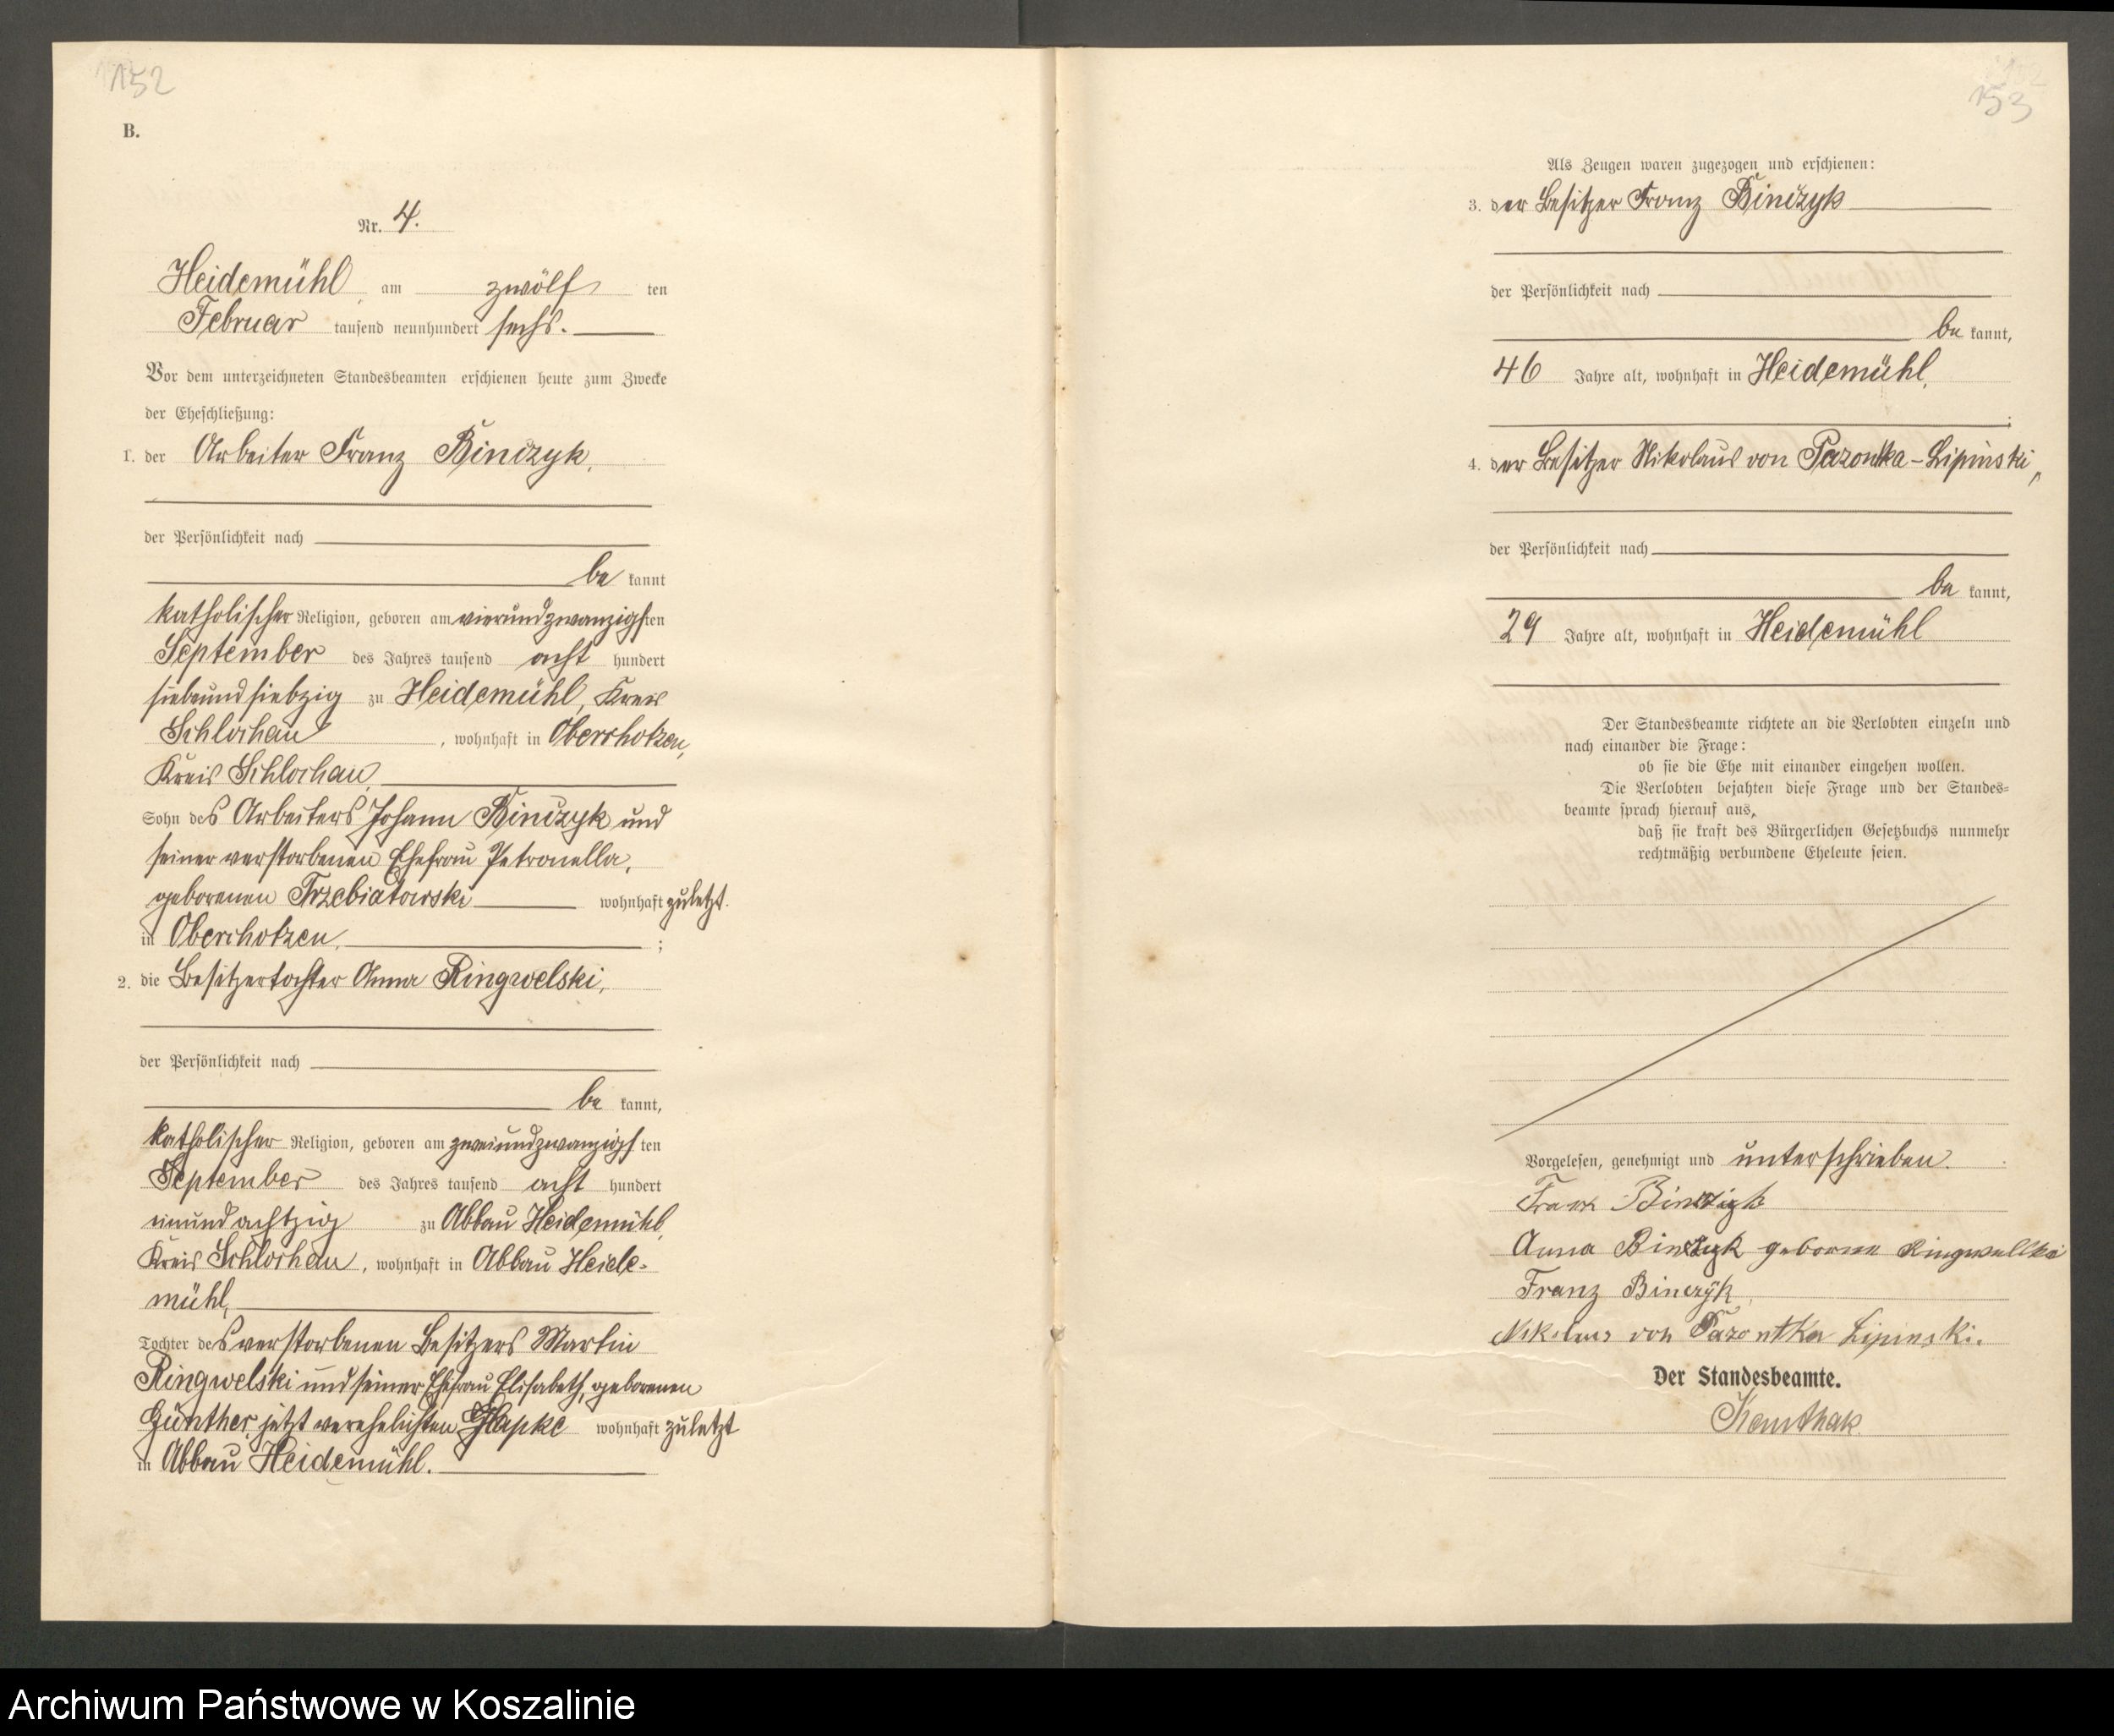 152
B.
Nr. 4.
Heidemühl am zwölf ten
Februar tausend neunhundert sechs.
Vor dem unterzeichneten Standesbeamten erschienen heute zum Zwecke
der Eheschließung:
1. der Arbeiter Franz Binczyk,
der Persönlichkeit nach
be kannt
katholischer Religion, geboren am vierundzwanzigsten
September des Jahres tausend acht hundert
siebenundsiebzig zu Heidemühl, Kreis
Schlochau, wohnhaft in Oberchotzen,
Kreis Schlochau,
Sohn des Arbeiters Johann Binczyk und
seiner verstorbenen Ehefrau Petronella,
geborenen Trzebiatowski wohnhaft zuletzt
in Oberchotzen, ;
2. die Besitzertochter Anna Ringwelski,
der Persönlichkeit nach
be kannt,
katholischer Religion, geboren am zweiundzwanzigsten
September des Jahres tausend acht hundert
einundachtzig zu Abbau Heidemühl,
Kreis Schlochau, wohnhaft in Abbau Heide-
mühl,
Tochter des verstorbenen Besitzers Martin
Ringwelski und seiner Ehefrau Elisabeth, geborenen
Günther, jetzt verehelichten wohnhaft zuletzt
in Abbau Heidemühl.
153
Als Zeugen waren zugezogen und erschienen:
3. der Besitzer Franz Binczyk
der Persönlichkeit nach
be kannt,
46 Jahre alt, wohnhaft in Heidemühl,
;
4. der Besitzer Nikolaus von Pazontka-Lipinski,
der Persönlichkeit nach
be kannt,
29 Jahre alt, wohnhaft in Heidemühl
Der Standesbeamte richtete an die Verlobten einzeln und
nach einander die Frage:
ob sie die Ehe mit einander eingehen wollen.
Die Verlobten bejahten diese Frage und der Standes-
beamte sprach hierauf aus,
daß sie kraft des Bürgerlichen Gesetzbuchs nunmehr
rechtmäßig verbundene Eheleute seien.
Vorgelesen, genehmigt und unterschrieben.
Franz
Anna Binczyk geborene
Franz Binczyk
Nikolaus von Pazontka Lipinski.
Der Standesbeamte.
Archiwum Państwowe w Koszalinie